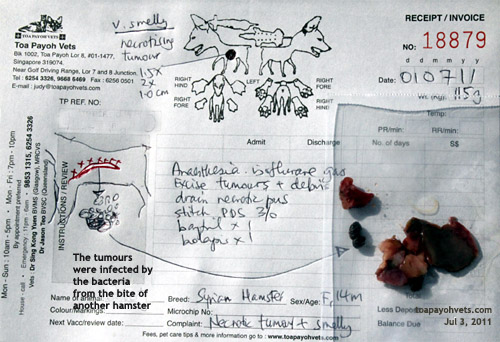 TOA PAYOH VETS
Toa Payoh Vets
Blk 1002, Toa Payoh Lor 8, #01-1477,
Singapore 319074.
Near Golf Driving Range, Lor 7 and 8 Junction.
Tel : 6254 3326, 9668 6469 Fax : 6256 0501
E-mail : judy@toapayohvets.com
TP REF. NO:
V. smelly
necrotising
tumour
1.5 x
2 x
1.0 cm
RIGHT HIND
LEFT HIND
RIGHT FORE
RIGHT HIND
LEFT
RIGHT FORE
RECEIPT / INVOICE
NO: 18879
d d m m y y
Date: 010711
Wt. (Kg): 115g
Temp:
Admit
Discharge
PR/min:
RR/min:
No. of days
S$
Anaesthesia isoflurane gas
Excise tumours + debris
drain necrotic pus
stitch PDS 3/0
baytril x 1
x 1
INSTRUCTIONS / REVIEW
Mon - Sun: 10am - 5pm • Mon - Fri: 7pm - 10pm
By appointment preferred
House - call • Emergency : 11pm - 6am 9853 1315, 6254 3326
Vets : Dr Sing Kong Yuen BVMS (Glasgow), MRCVS
Dr Jason Teo BVSC (Queensland)
The tumours
were infected by
the bacteria
from the bite of
another hamster
Name of animal:
Breed: Syrian Hamster
Sex/Age: F, 14m
Colour/Markings:
Microchip No:
Next Vacc/review date:
Complaint: Necrotic tumour + smelly
Total
Less Deposit
Balance Due
toapayohvets.com
Jul 3, 2011
Fees, pet care tips & more information go to : www.toapayohvets.com